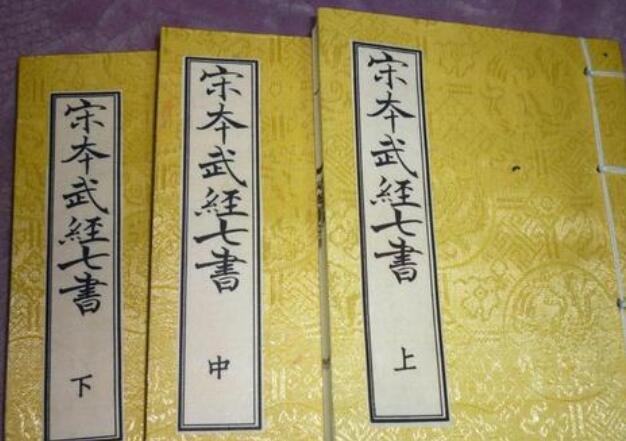 宋本武經七書
上
宋本武經七書
中
宋本武經七書
下